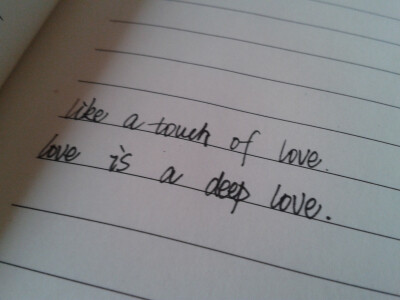 like a touch of love.
love is a deep love.